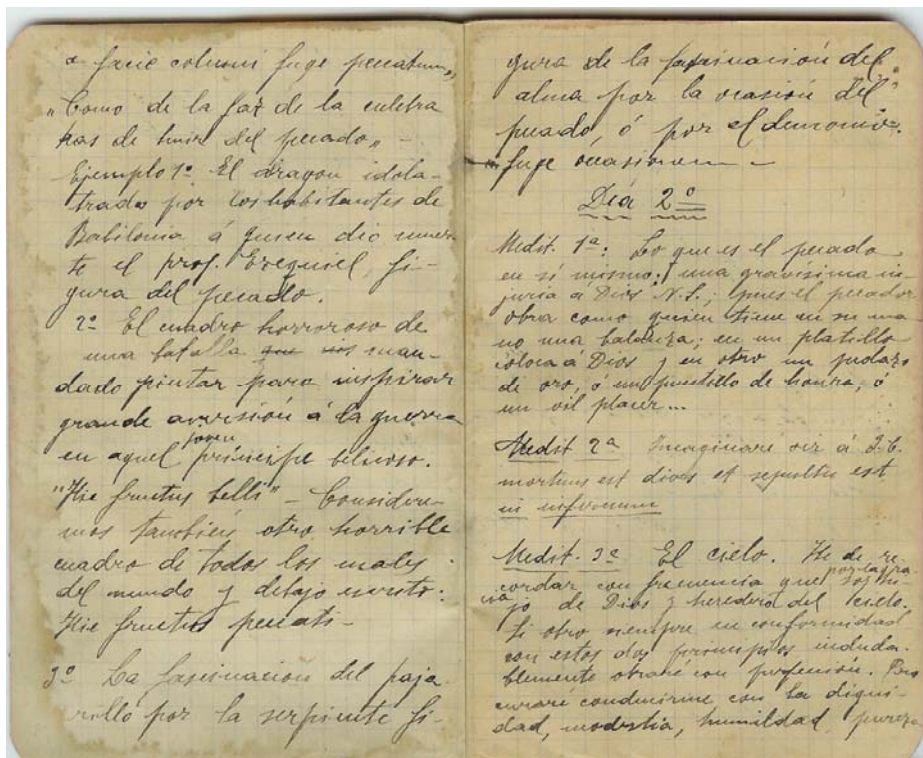 a facie colubri fuge peccatum„
„Como de la faz de la culebra
has de huir del pecado„ -
Ejemplo 1º El dragon idola-
trado por los habitantes de
Babilonia á quien dió muer-
te el prof. Ezequiel, fi-
gura del pecado.
2º El cuadro horroroso de
una batalla que man-
dado pintar para inspirar
grande aversión á la guerra
en aquel joven príncipe belicoso.
"Hic fructus belli" - Considere-
mos también otro horrible
cuadro de todos los males
del mundo y debajo escrito:
Hic fructus peccati -
3º La fascinacion del paja-
rillo por la serpiente fi-
gura de la fascinación del
alma por la ocasión del
pecado, ó por el demonio.
"fuge ocasionem -
Día 2º
Medit. 1ª: Lo que es el pecado
en sí mismo: una gravísima in-
juria á Dios N.S.; pues el pecador
obra como quien tiene en su ma-
no una balanza; en un platillo
coloca á Dios y en otro un pedazo
de oro, ó un puntillo de honra, ó
un vil placer...
Medit 2ª Imaginaré oir á J.C.
mortuus est dives et sepultus est
in infernum
Medit. 3ª El cielo. He de re-
cordar con frecuencia que por la gra-
cia soy hi-
jo de Dios y heredero del cielo.
Si obro siempre en conformidad
con estos dos principios induda-
blemente obraré con perfección. Pro
curaré conducirme con la digni-
dad, modestia, humildad, pureza